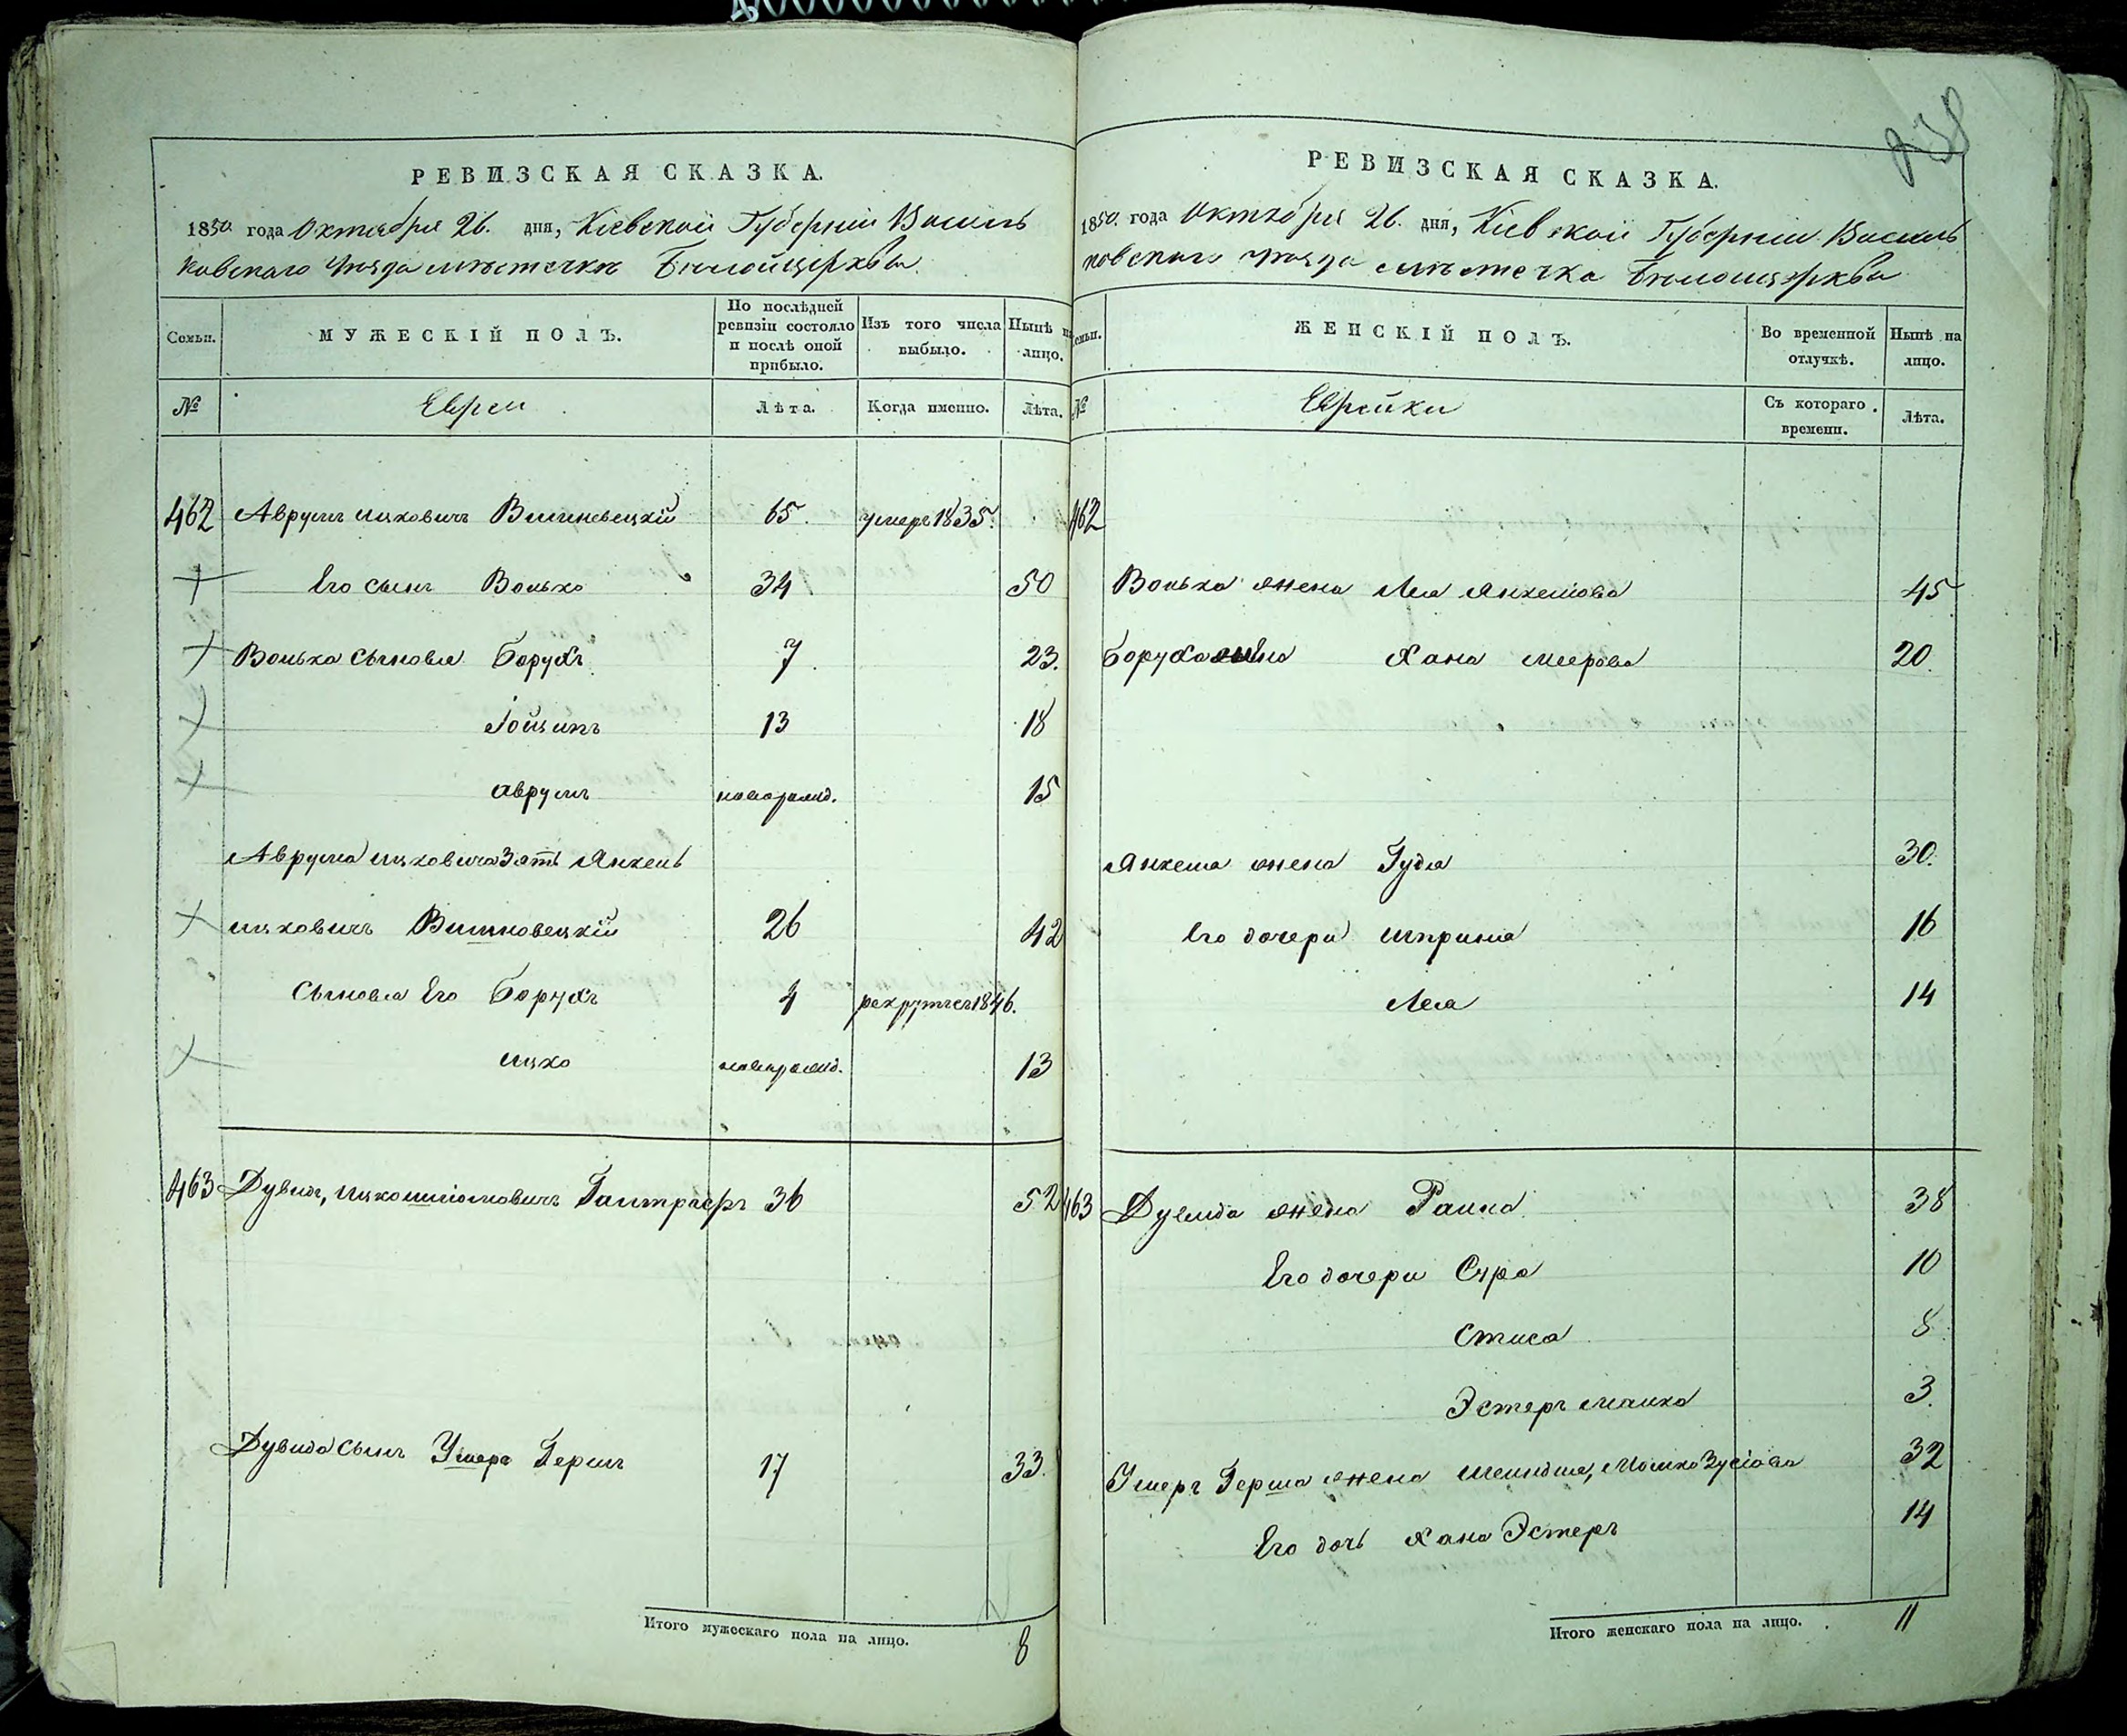 РЕВИЗСКАЯ СКАЗКА.
1850 года Октября 26. дня, Кіевской Губерніи Василь
ковскаго Уѣзда мѣстечка Бѣлойцеркви.
Семьи.
МУЖЕСКІЙ ПОЛЪ.
По послѣдней ревизіи состояло и послѣ оной прибыло.
Изъ того числа выбыло.
Нынѣ на лицо.
№
Евреи
Лѣта.
Когда именно.
Лѣта.
462 Аврумъ Ицковичъ Вишневецкій 65. умеръ 1835.
Его сынъ Волько 34 50
Волька сыновья Борухъ 7. 23.
Іойсипъ 13 18
Аврумъ новорожд. 15
Аврума Ицковича Зять Янкель
Ицковичъ Вишновецкій 26 42
Сыновья Его Борухъ 4 рекрутъ съ 1846.
Ицко новорожд. 13
463 Дувидъ, Ицкошліомовичъ 36 52
Дувида сынъ Ушеръ Гершъ 17 33.
Итого мужескаго пола на лицо. 8
РЕВИЗСКАЯ СКАЗКА.
1850. года Октября 26. дня, Кіевской Губерніи Василь
ковскаго уѣзда мѣстечка Бѣлойцеркви
Семьи.
ЖЕНСКІЙ ПОЛЪ.
Во временной отлучкѣ.
Нынѣ на лицо.
№
Еврейки
Съ котораго времени.
Лѣта.
462
Волька жена Лея Янкелова 45
Боруха жена Хана Меерова 20.
Янкеля жена Гудя 30.
Его дочери Шприна 16
Лея 14
463 Дувида жена Раиса 38
Его дочери Сура 10
Стиса 8
Эстеръ Малка 3.
Ушеръ Герша жена Шейндля, Мошко Зусіова 32
Его дочь Хана Эстеръ 14
Итого женскаго пола на лицо. 11